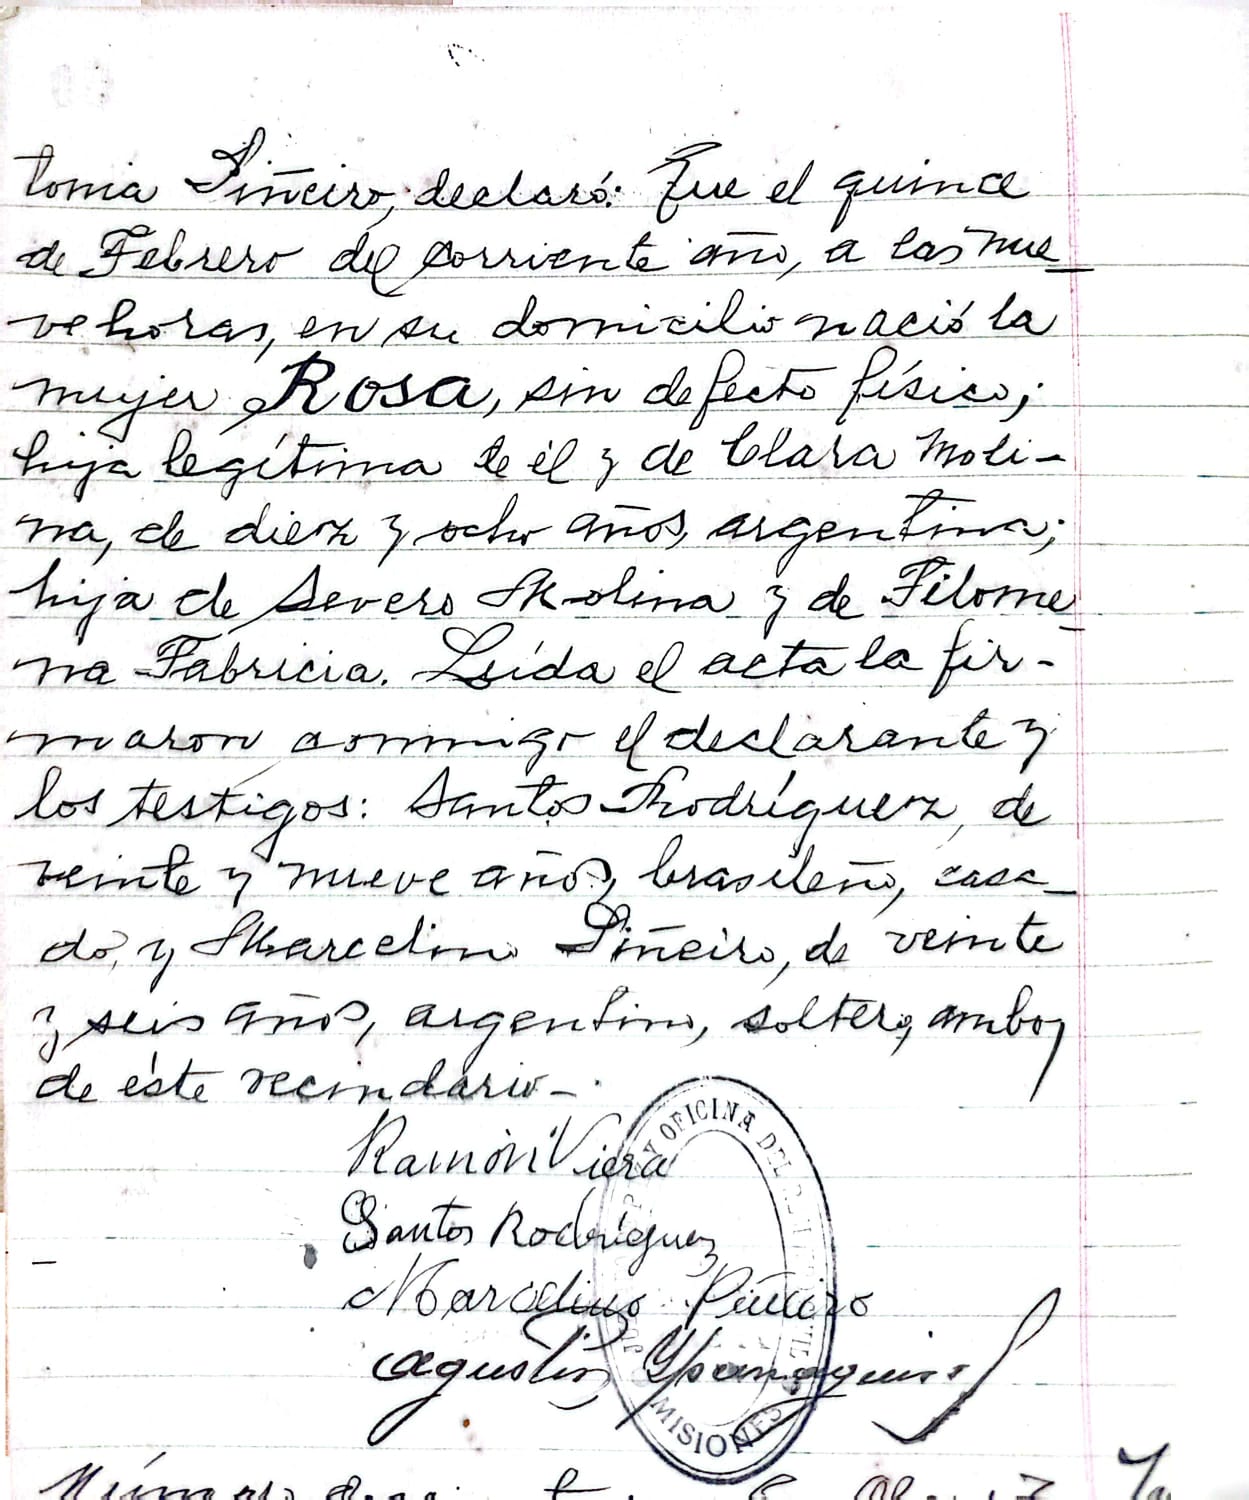 tonia Piñeiro, declaró: Que el quince
de Febrero del corriente año, a las nue_
ve horas, en su domicilio nació la
mujer Rosa, sin defecto físico;
hija legítima de él y de Clara Moli-
na, de diez y ocho años, argentina;
hija de Severo Molina y de Filome_
na Fabricia. Leída el acta la fir-
maron conmigo el declarante y
los testigos: Santos Rodríguez, de
veinte y nueve años, brasileño, casa_
do, y Marcelino Piñeiro, de veinte
y seis años, argentino, soltero, ambos
de éste vecindario-.
Ramón Viera
Santos Rodríguez
Marcelino Piñeiro
Agustín
Y OFICINA DEL
MISIONES
Número